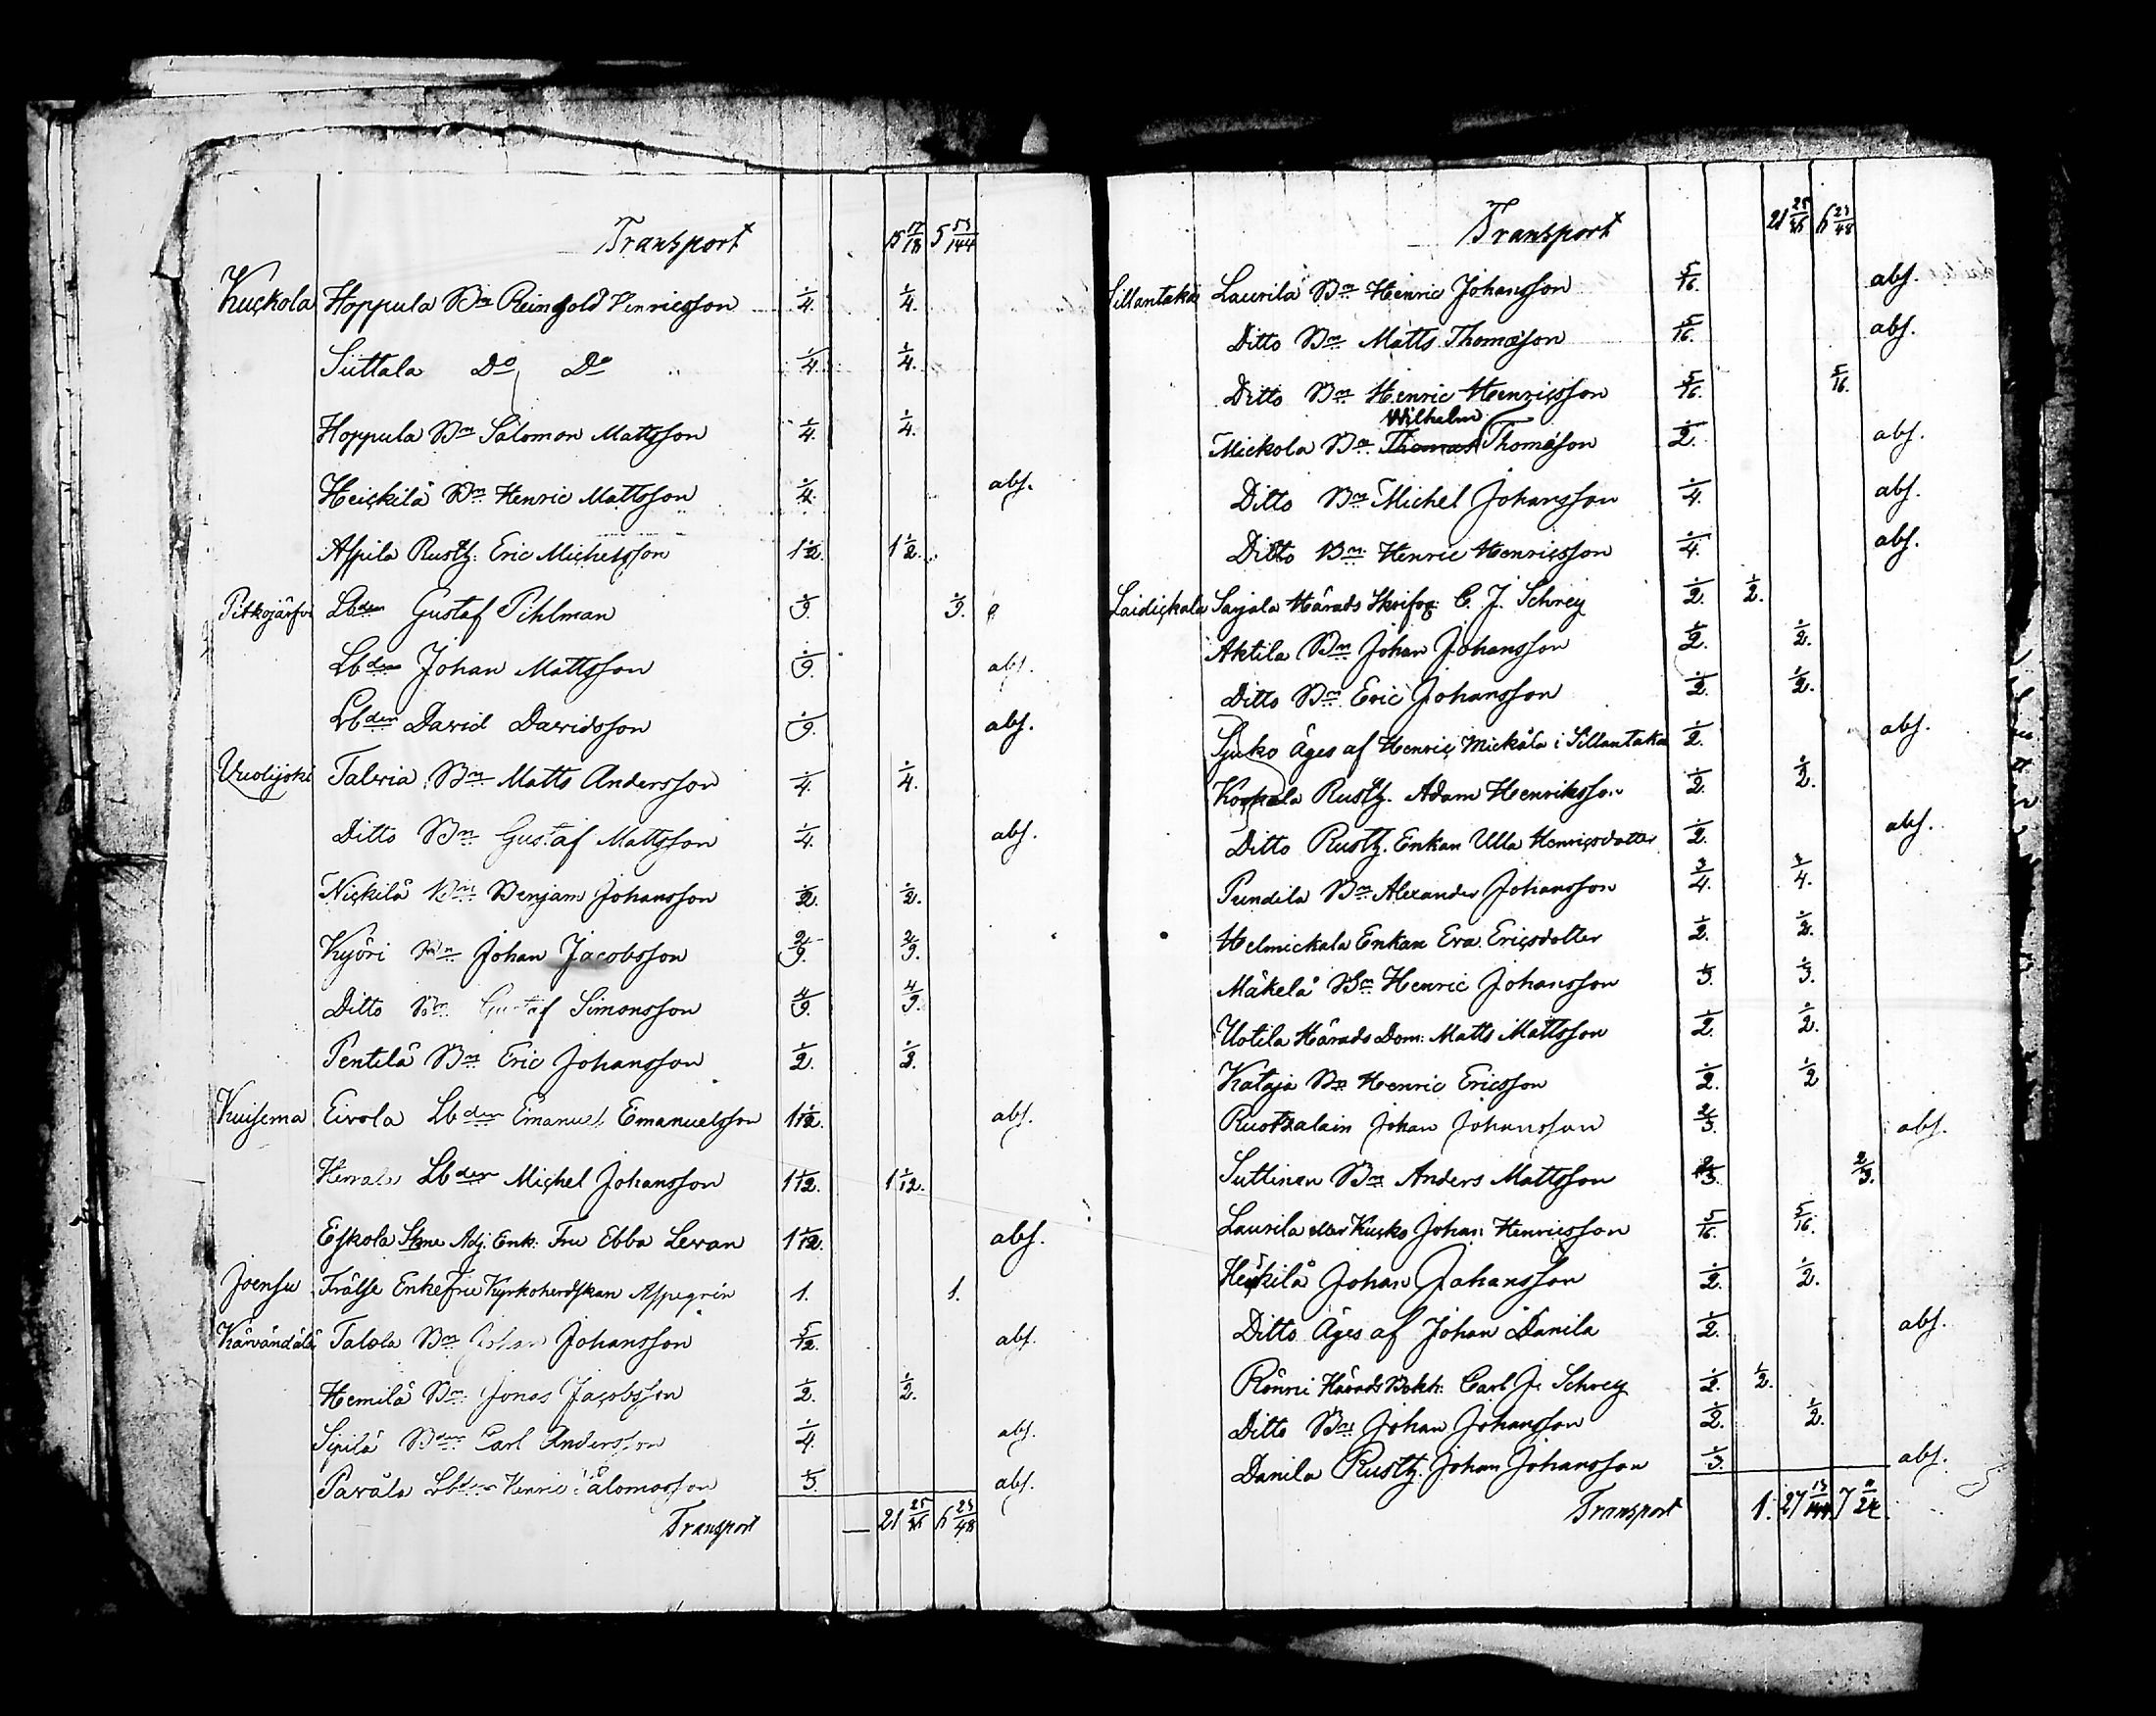 Transport 15 17/18 5 53/144
Kuckola Hoppula Bn Reinhold Henricsson 1/4. 1/4.
Suttala Do Do 1/4. 1/4.
Hoppula Bn Salomon Mattsson 1/4. 1/4.
Heickilä Bn Henric Mattsson 1/4. abs.
Aspila Rustg. Eric Michelsson 1 1/2. 1 1/2.
Pitkojärfvi Lbden Gustaf Pihlman 1/9. 1/9.
Lbden Johan Mattsson 1/9. abs.
Lbden David Davidsson 1/9. abs.
Vuolijoki Talvia Bn Matts Andersson 1/4. 1/4.
Ditto Bn Gustaf Mattsson 1/4. abs.
Nickilä Bn Benjam Johansson 1/2. 1/2.
Kyöri Bn Johan Jacobsson 2/9. 2/9.
Ditto Bn Gustaf Simonsson 4/9. 4/9.
Pentilä Bn Eric Johansson 1/2. 1/2.
Kuisema Eivola Lbden Emanuel Emanuelsson 1 1/12. abs.
Lbden Michel Johansson 1 1/12. 1 1/12.
Eskola Adj. Enk. Fru Ebba Levan 1 1/12. abs.
Joensu Frälse Enkefru Kyrkoherdskan Aspegrén 1. 1.
Talola Bn Johan Johansson 5/12. abs.
Hemilä Bn Jonas Jacobsson 1/2. 1/2.
Sipilä Bden Carl Andersson 1/4. abs.
Parälä Lbden Henric Salomosson 1/3. abs.
Transport — 21 25/36 6 23/48
Transport 21 25/36 6 23/48
Sillantaka Laurila Bn Henric Johansson 5/16. abs.
Ditto Bn Matts Thomasson 5/16. abs.
Ditto Bn Henric Henricsson 5/16. 5/16.
Wilhelm
Mickola Bn Thomas Thomasson 1/2. abs.
Ditto Bn Michel Johansson 1/4. abs.
Ditto Bn Henric Henricsson 1/4. abs.
Laidickala Sarjala Härads Skrifv. C. J. Schrey 1/2. 1/2.
Aktila Bn Johan Johansson 1/2. 1/2.
Ditto Bn Eric Johansson 1/2. 1/2.
Äges af Henric Mickola i Sillantaka 1/2. abs.
Rustg. Adam Henriksson 1/2. 1/2.
Ditto Rustg. Enkan Ulla Henricsdotter 1/2. abs.
Pundila Bn Alexander Johansson 3/4. 3/4.
Helmickala Enkan Eva Ericsdotter 1/2. 1/2.
Mäkelä Bn Henric Johansson 1/3. 1/3.
Uotila Härads Dom. Matts Mattsson 1/2. 1/2.
Kataja Bn Henric Ericsson 1/2. 1/2
Ruotzalain Johan Johansson 2/3. abs.
Suttinen Bn Anders Mattsson 2/3. 2/3.
Laurila eller Kucko Johan Henricsson 5/16. 5/16.
Heickilä Johan Johansson 1/2. 1/2.
Ditto Äges af Johan Danila 1/2. abs.
Rönni Härads Bokh. Carl J. Schrey 1/2. 1/2.
Ditto Bn Johan Johansson 1/2. 1/2.
Danila Rustg. Johan Johansson 1/3. abs.
Transport 1. 27 13/144 7